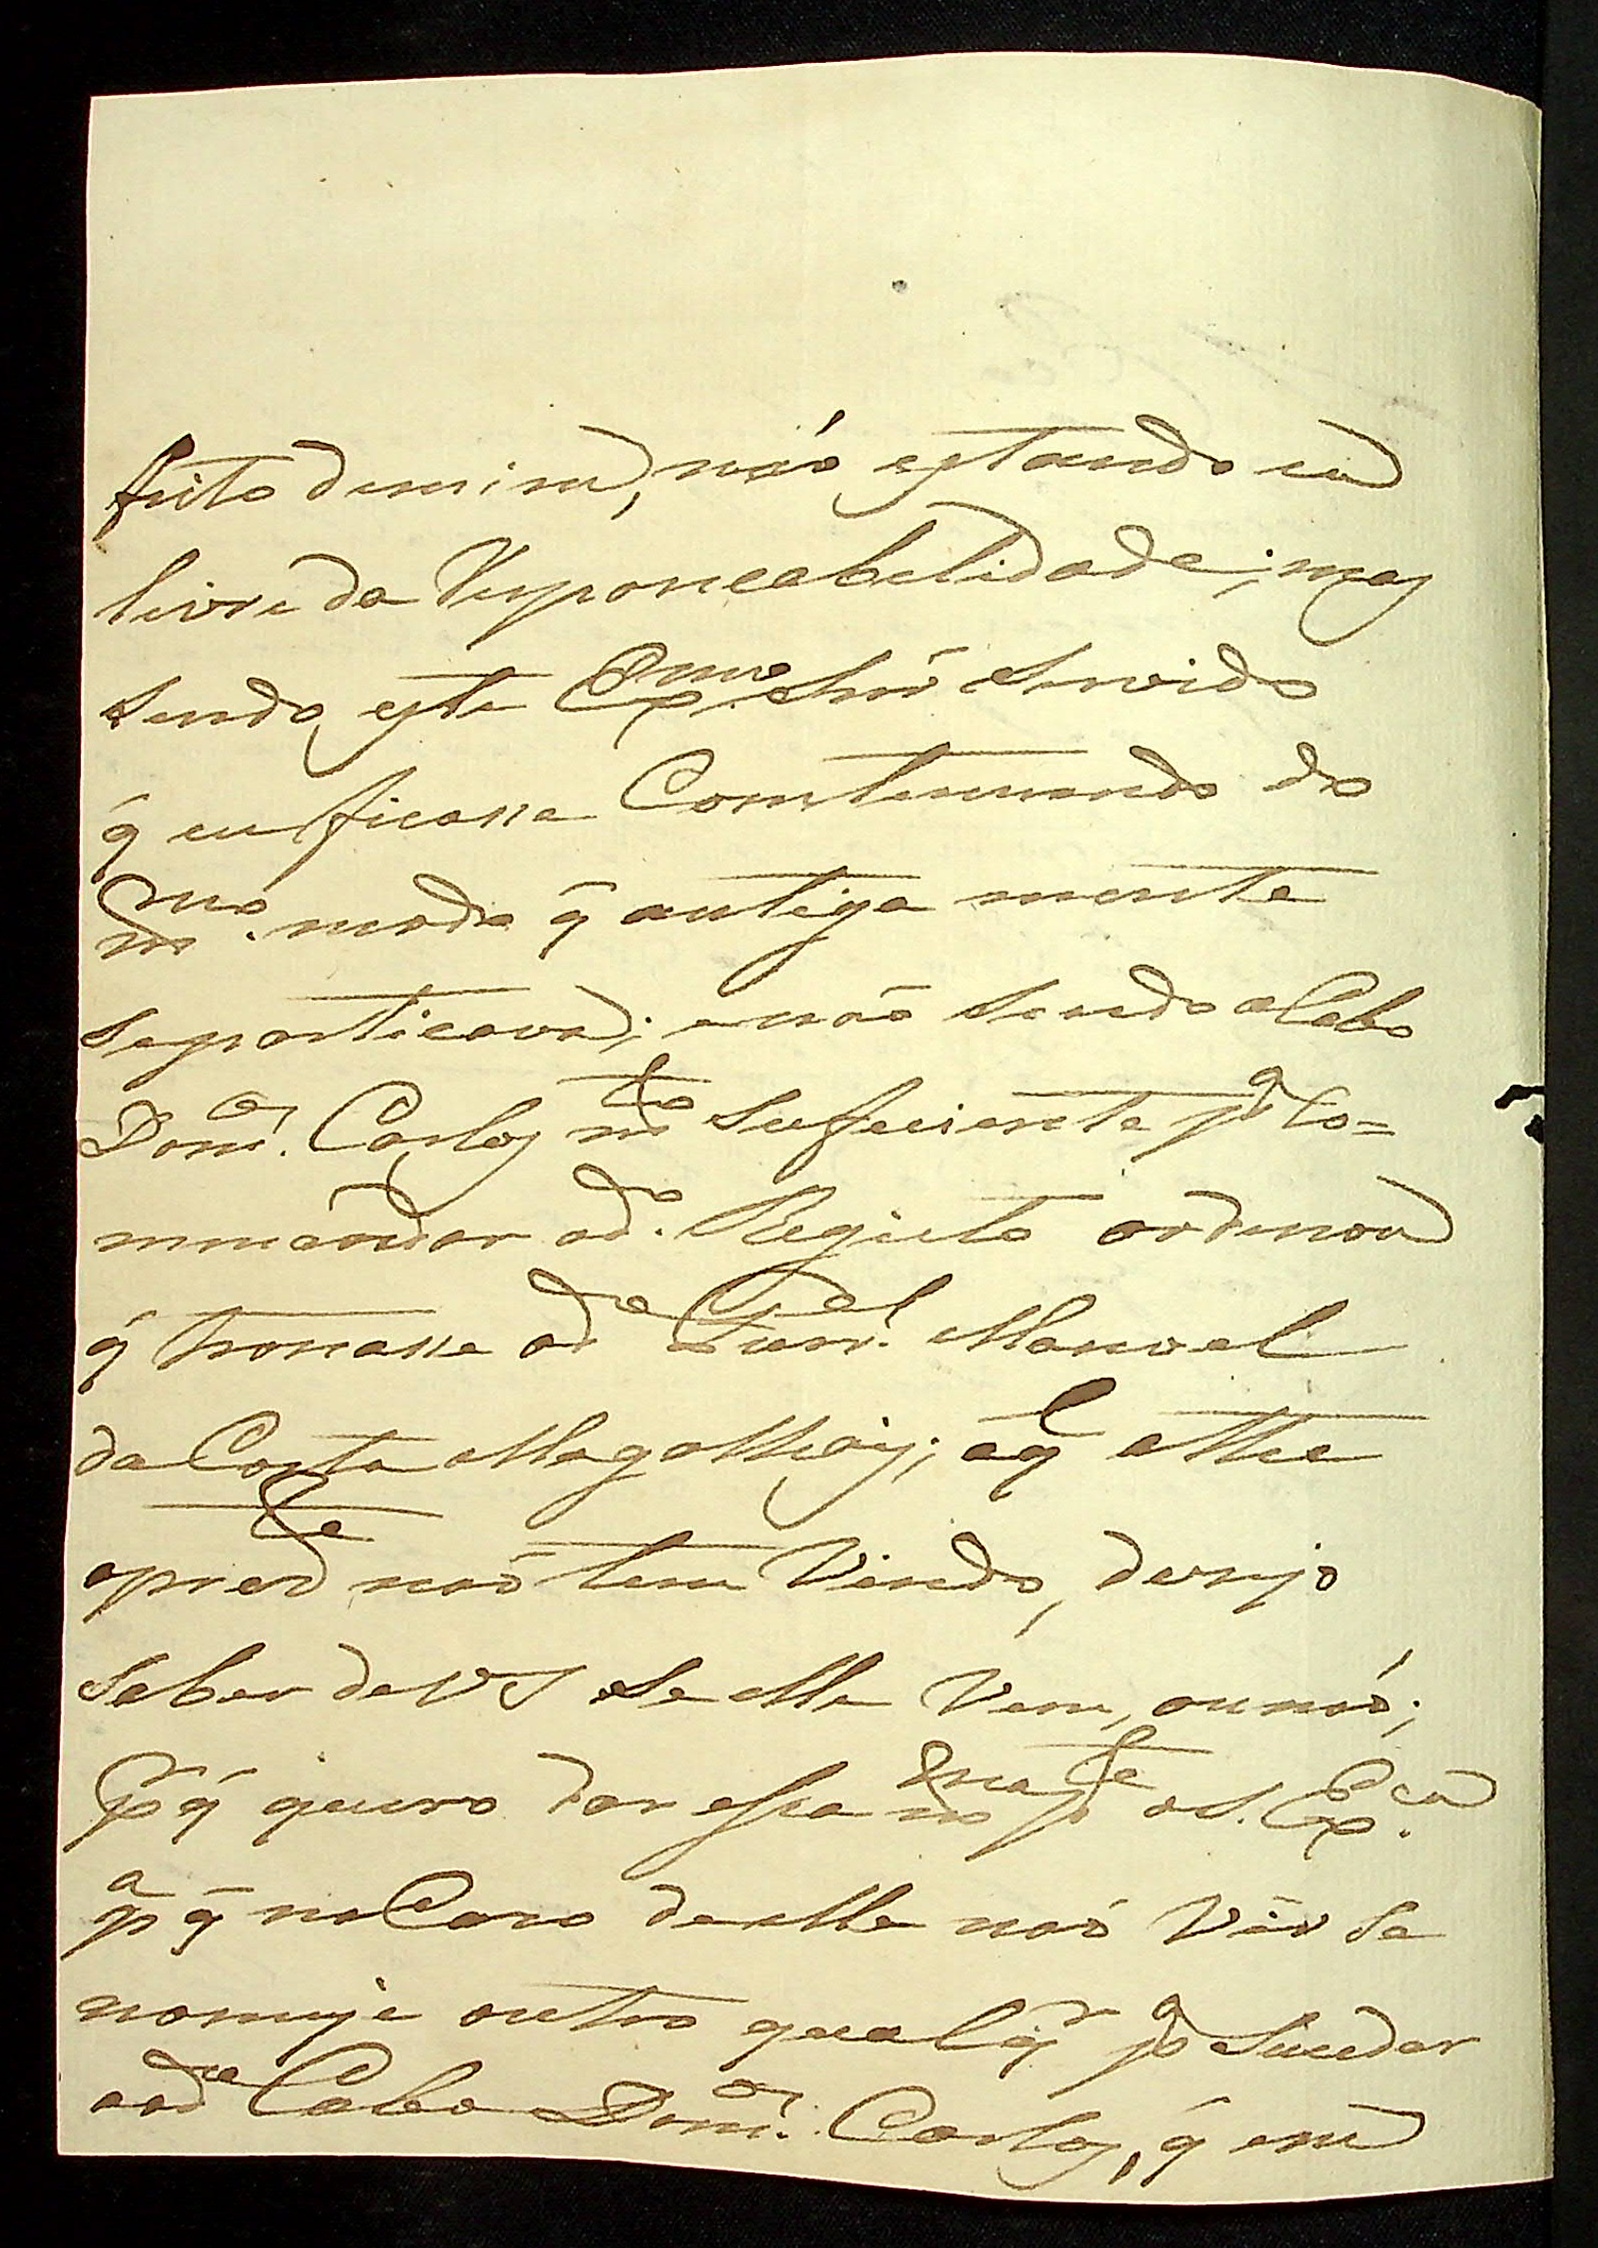 feito demim, naõ estando eu
livre da Responcabelidade; mas
sendo este Ex.mo Snr̃ Servido
q̃ eu ficasse Comtenuando do
m.mo modo q̃ antiga mente
sepraticava; enaõ sendo oCabo
Dom.os Carlos m.to Sufeciente p.a Co=
mmandar od.o Registo ordenou
q̃ trocasse od.o Furr.el Manoel
da Costa Magalhais; aq.l athe
opred.te naõ tem Vindo, dezejo
Saber deVS Se elle Vem, ou naõ;
P.r q̃ quero dar essa m.ma p.te a S. Ex.cia
p.a q̃ noCaso deelle naõ Vir se
nomeje outro qualq.r p.a Suceder
aod.o Cabo Dom.os Carlos, q̃ em